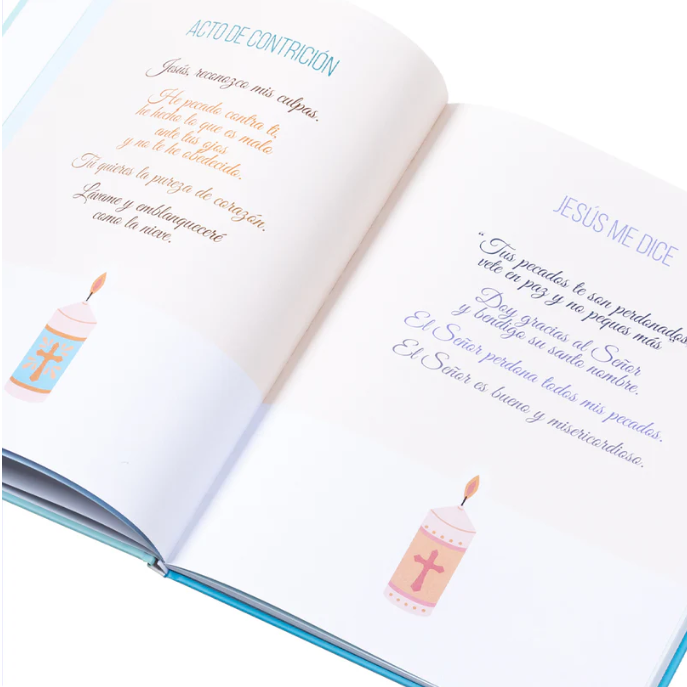 ACTO DE CONTRICIÓN
Jesús, reconozco mis culpas.
He pecado contra ti,
he hecho lo que es malo
ante tus ojos
y no te he obedecido.
Tú quieres la pureza de corazón.
Lávame y emblanqueceré
como la nieve.
JESÚS ME DICE
“Tus pecados te son perdonados
vete en paz y no peques más
Doy gracias al Señor
y bendigo su santo nombre.
El Señor perdona todos mis pecados.
El Señor es bueno y misericordioso.